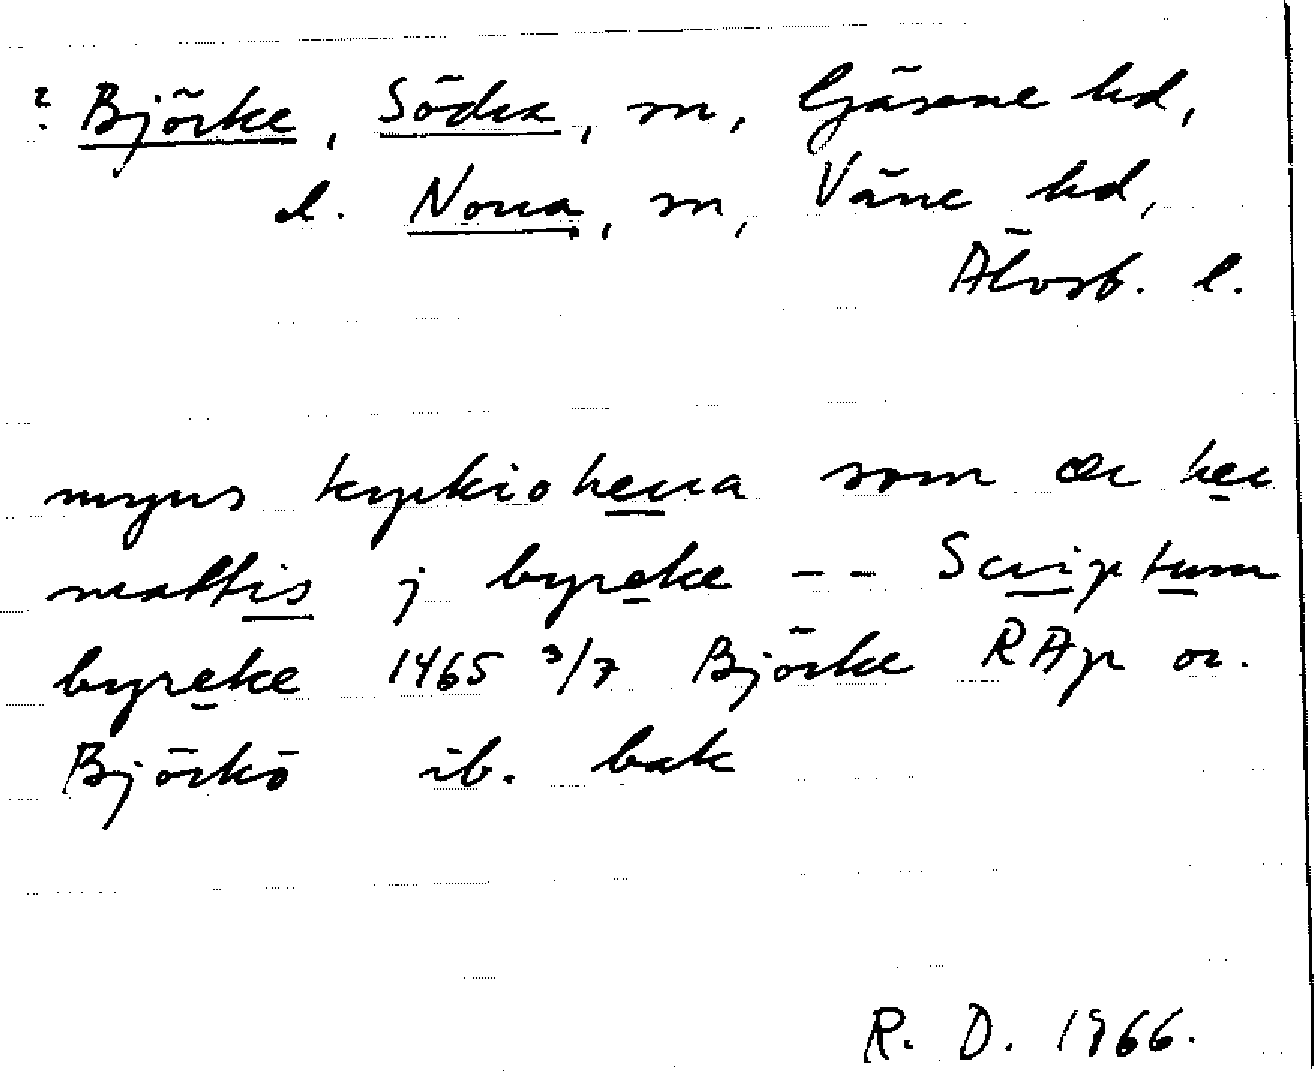 ? Björke, Södra, sn, Gäsene hd,
el. Norra, sn, Väne hd,
Älvsb. l.
myns kyrkioherra som ær her
mattis j byreke -- Scriptum
byreke 1465 3/7 Björke RAp or.
Björkö ib. bak
R. D. 1966.